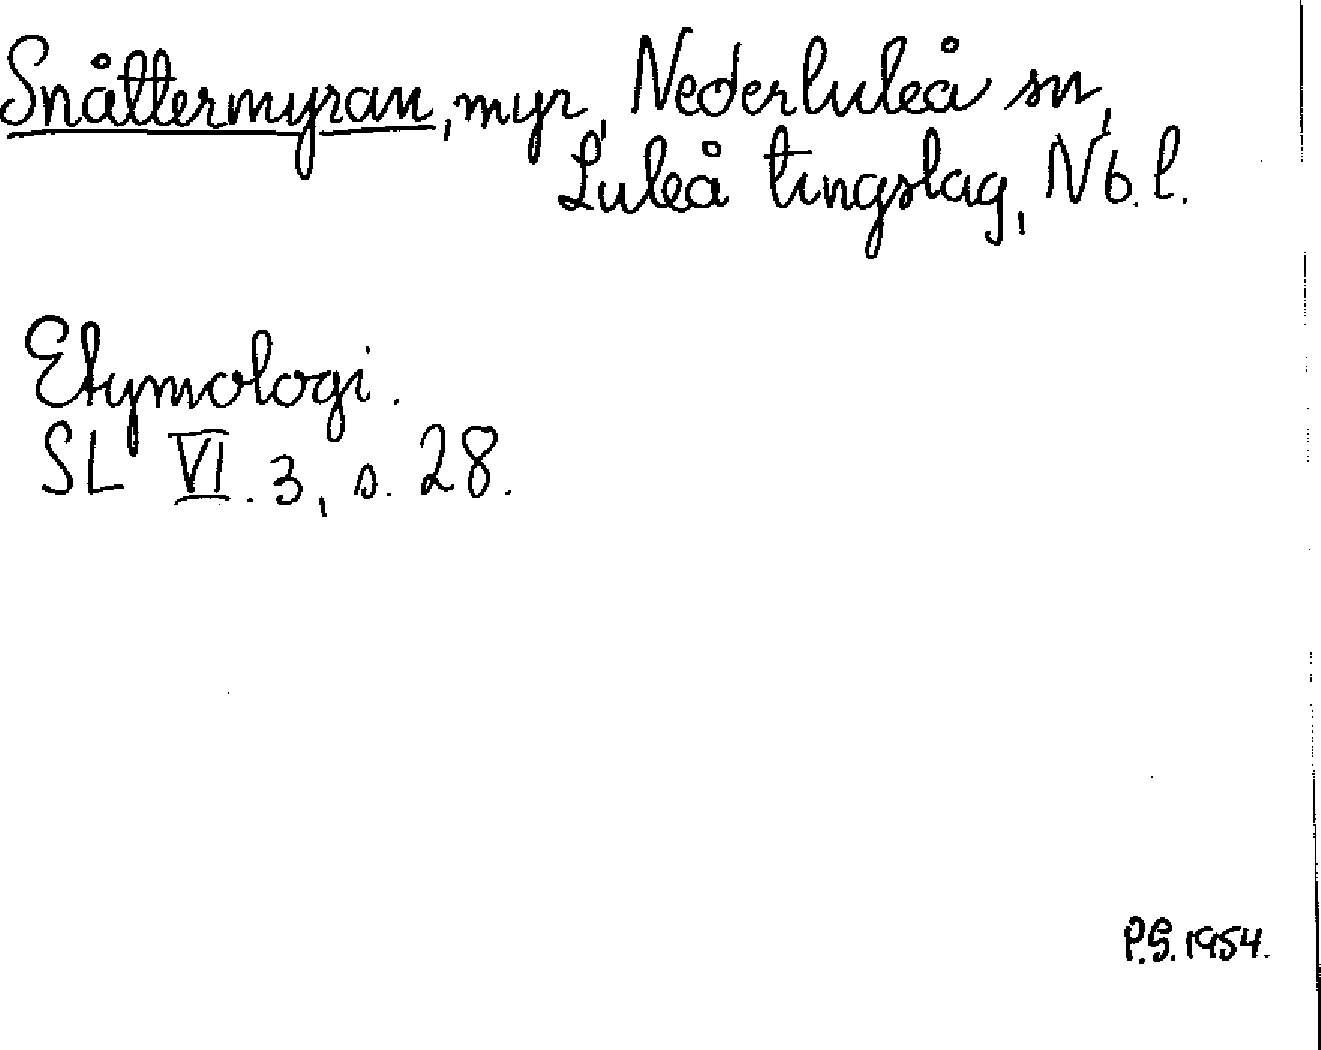 Snåttermyran, myr, Nederluleå sn,
Luleå tingslag, Nb. l.
Etymologi.
SL VI. 3, s. 28.
P.S. 1954.